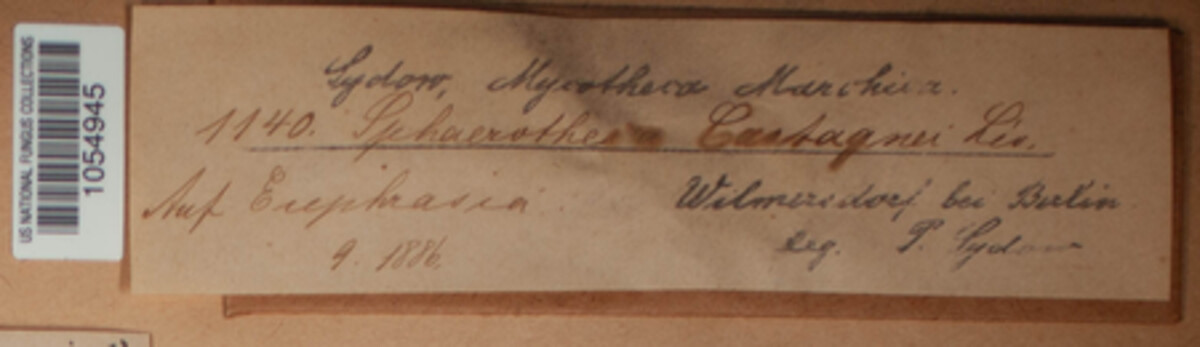 US NATIONAL FUNGUS COLLECTIONS
1054945
Sydow, Mycotheca Marchica.
1140. Sphaerotheca Castagnei Lév.
Auf Euphrasia
Wilmersdorf bei Berlin
9. 1886.
leg. P. Sydow